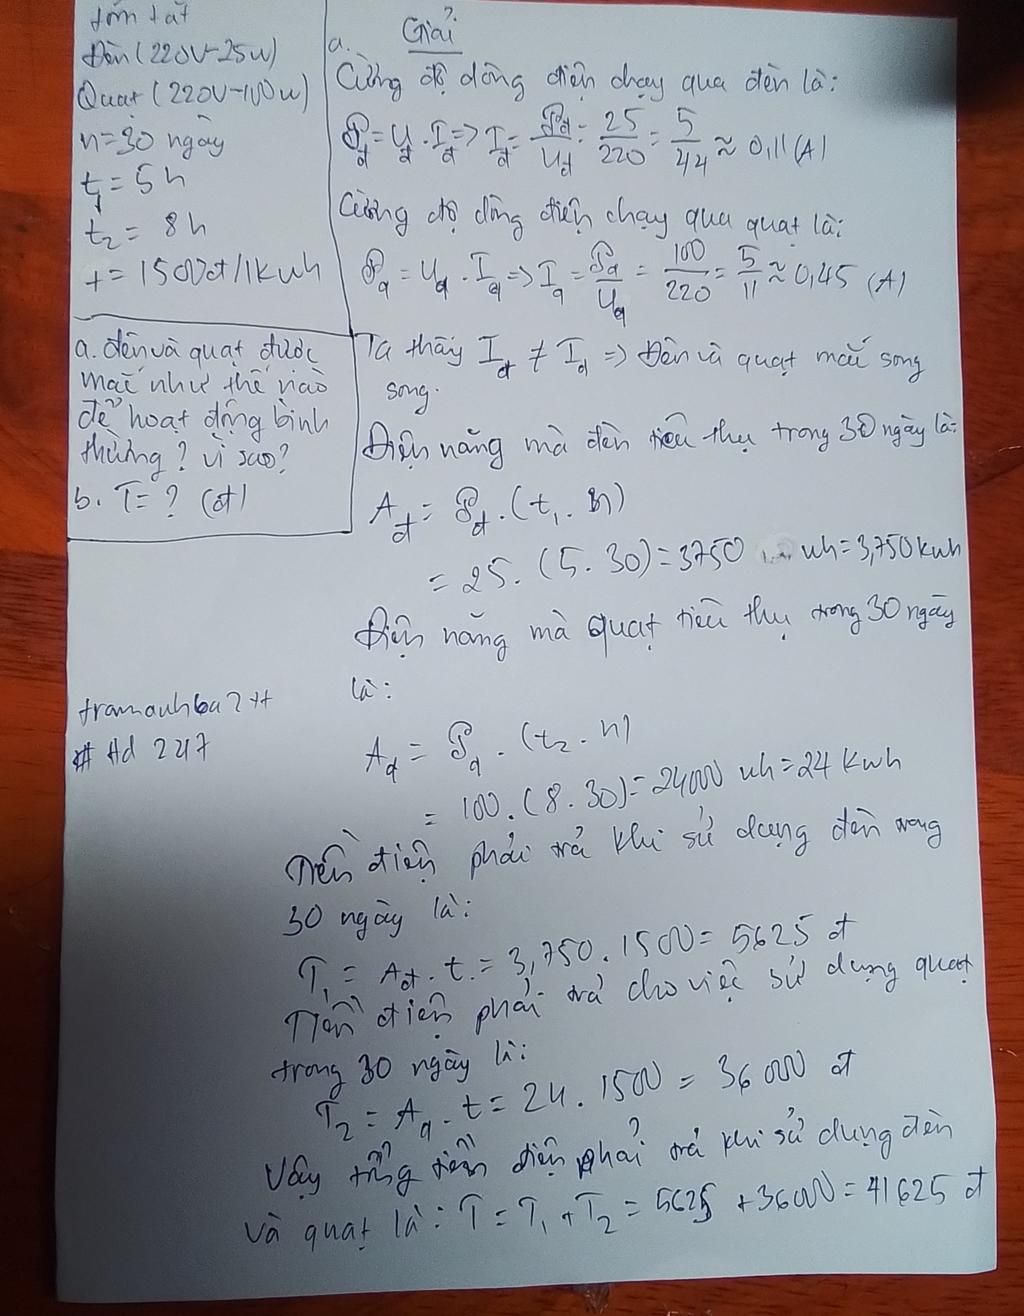 tóm tắt
Đèn (220V-25W)
Quạt (220V-100W)
n=30 ngày
t₁= 5h
t₂= 8h
t= 1500đ/1kwh
a. đèn và quạt được
mắc như thế nào
để hoạt động bình
thường? vì sao?
b. T= ? (đ)
tramanh6a2tt
# Hd 247
Giải
a.
Cường độ dòng điện chạy qua đèn là:
𝒫đ = Uđ . Iđ => Iđ = 𝒫đ/Uđ = 25/220 = 5/44 ≈ 0,11 (A)
Cường độ dòng điện chạy qua quạt là:
𝒫q = Uq . Iq => Iq = 𝒫q/Uq = 100/220 = 5/11 ≈ 0,45 (A)
Ta thấy Iđ ≠ Iq => Đèn và quạt mắc song
song.
Điện năng mà đèn tiêu thụ trong 30 ngày là:
Ađ = 𝒫đ . (t₁ . n)
= 25. (5. 30) = 3750 wh = 3,750 kwh
Điện năng mà quạt tiêu thụ trong 30 ngày
là:
Aq = 𝒫q . (t₂ . n)
= 100. (8. 30) = 24000 wh = 24 kwh
Tiền điện phải trả khi sử dụng đèn trong
30 ngày là:
T₁ = Ađ . t = 3,750. 1500 = 5625 đ
Tiền điện phải trả cho việc sử dụng quạt
trong 30 ngày là:
T₂ = Aq . t = 24. 1500 = 36000 đ
Vậy tổng tiền điện phải trả khi sử dụng đèn
và quạt là: T = T₁ + T₂ = 5625 + 36000 = 41625 đ